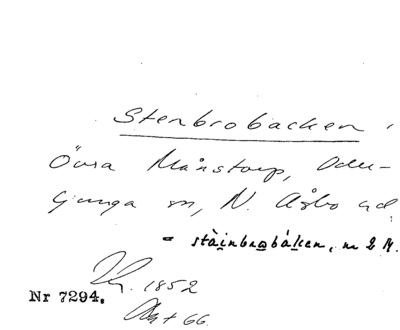 Stenbrobacken,
Övra Månstorp, Oder-
ljunga sn, N. Åsbo hd.
= stàinbrobáken, m 2 14.
1852
Nr 7294.
+ 66